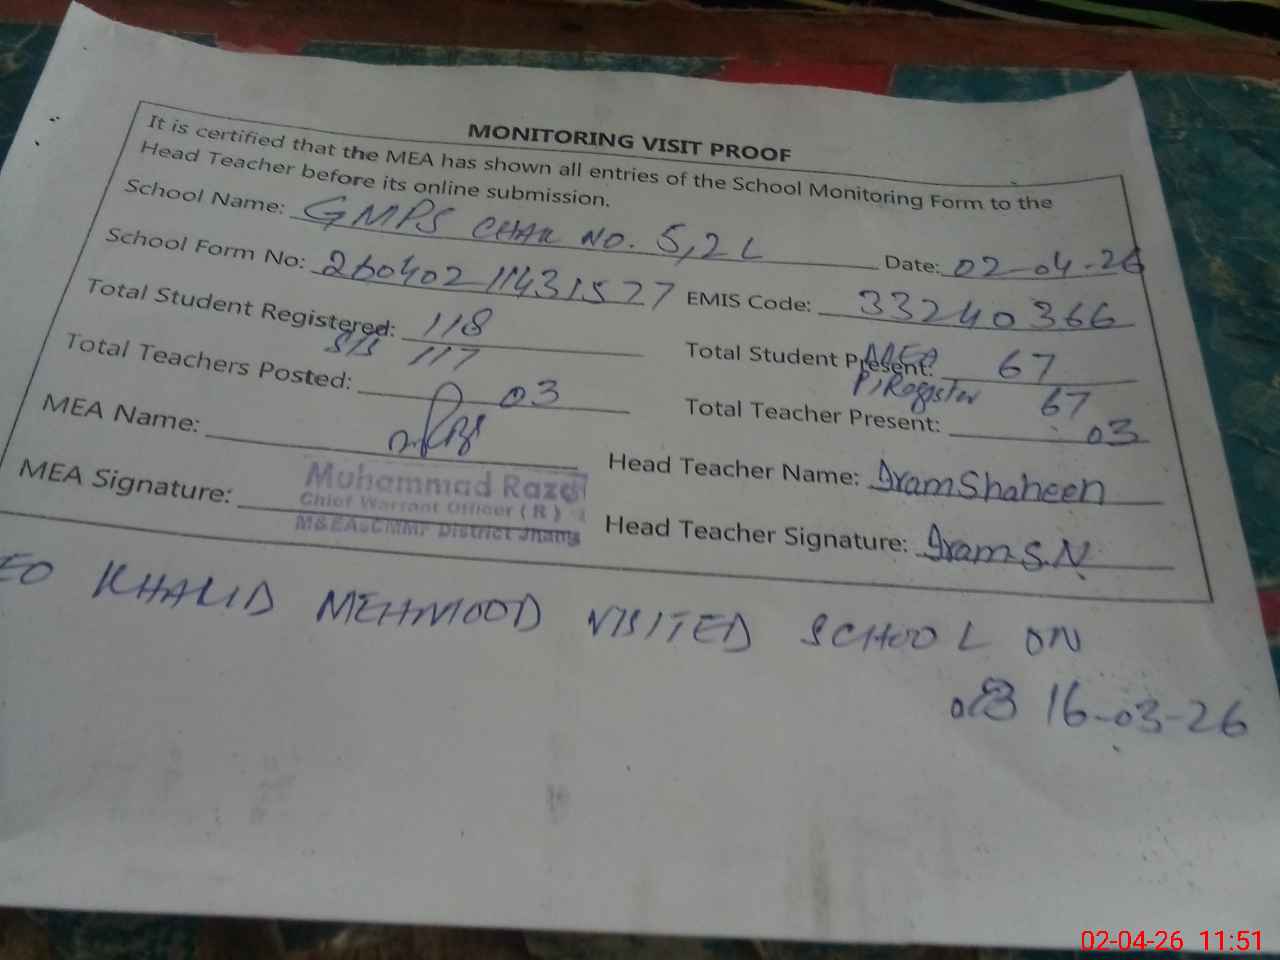 MONITORING VISIT PROOF
It is certified that the MEA has shown all entries of the School Monitoring Form to the
Head Teacher before its online submission.
School Name: GMPS CHAK NO. 5,2 L Date: 02-04-26
School Form No: 26040211431527 EMIS Code: 33240366
Total Student Registered: 118 Total Student Present: MEA 67
SIS 117 P/Register 67
Total Teachers Posted: 03 Total Teacher Present: 03
MEA Name: Head Teacher Name: Iram Shaheen
MEA Signature: Head Teacher Signature: Iram S.N
Muhammad Raza
Chief Warrant Officer (R)
M&EAs CMMF District Jhang
EO KHALID MEHMOOD VISITED SCHOOL ON
16-03-26
02-04-26 11:51